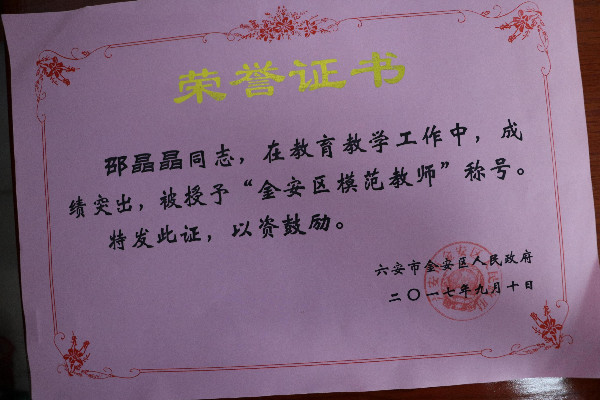 荣誉证书
邵晶晶同志，在教育教学工作中，成
绩突出，被授予“金安区模范教师”称号。
特发此证，以资鼓励。
六安市金安区人民政府
二〇一七年九月十日